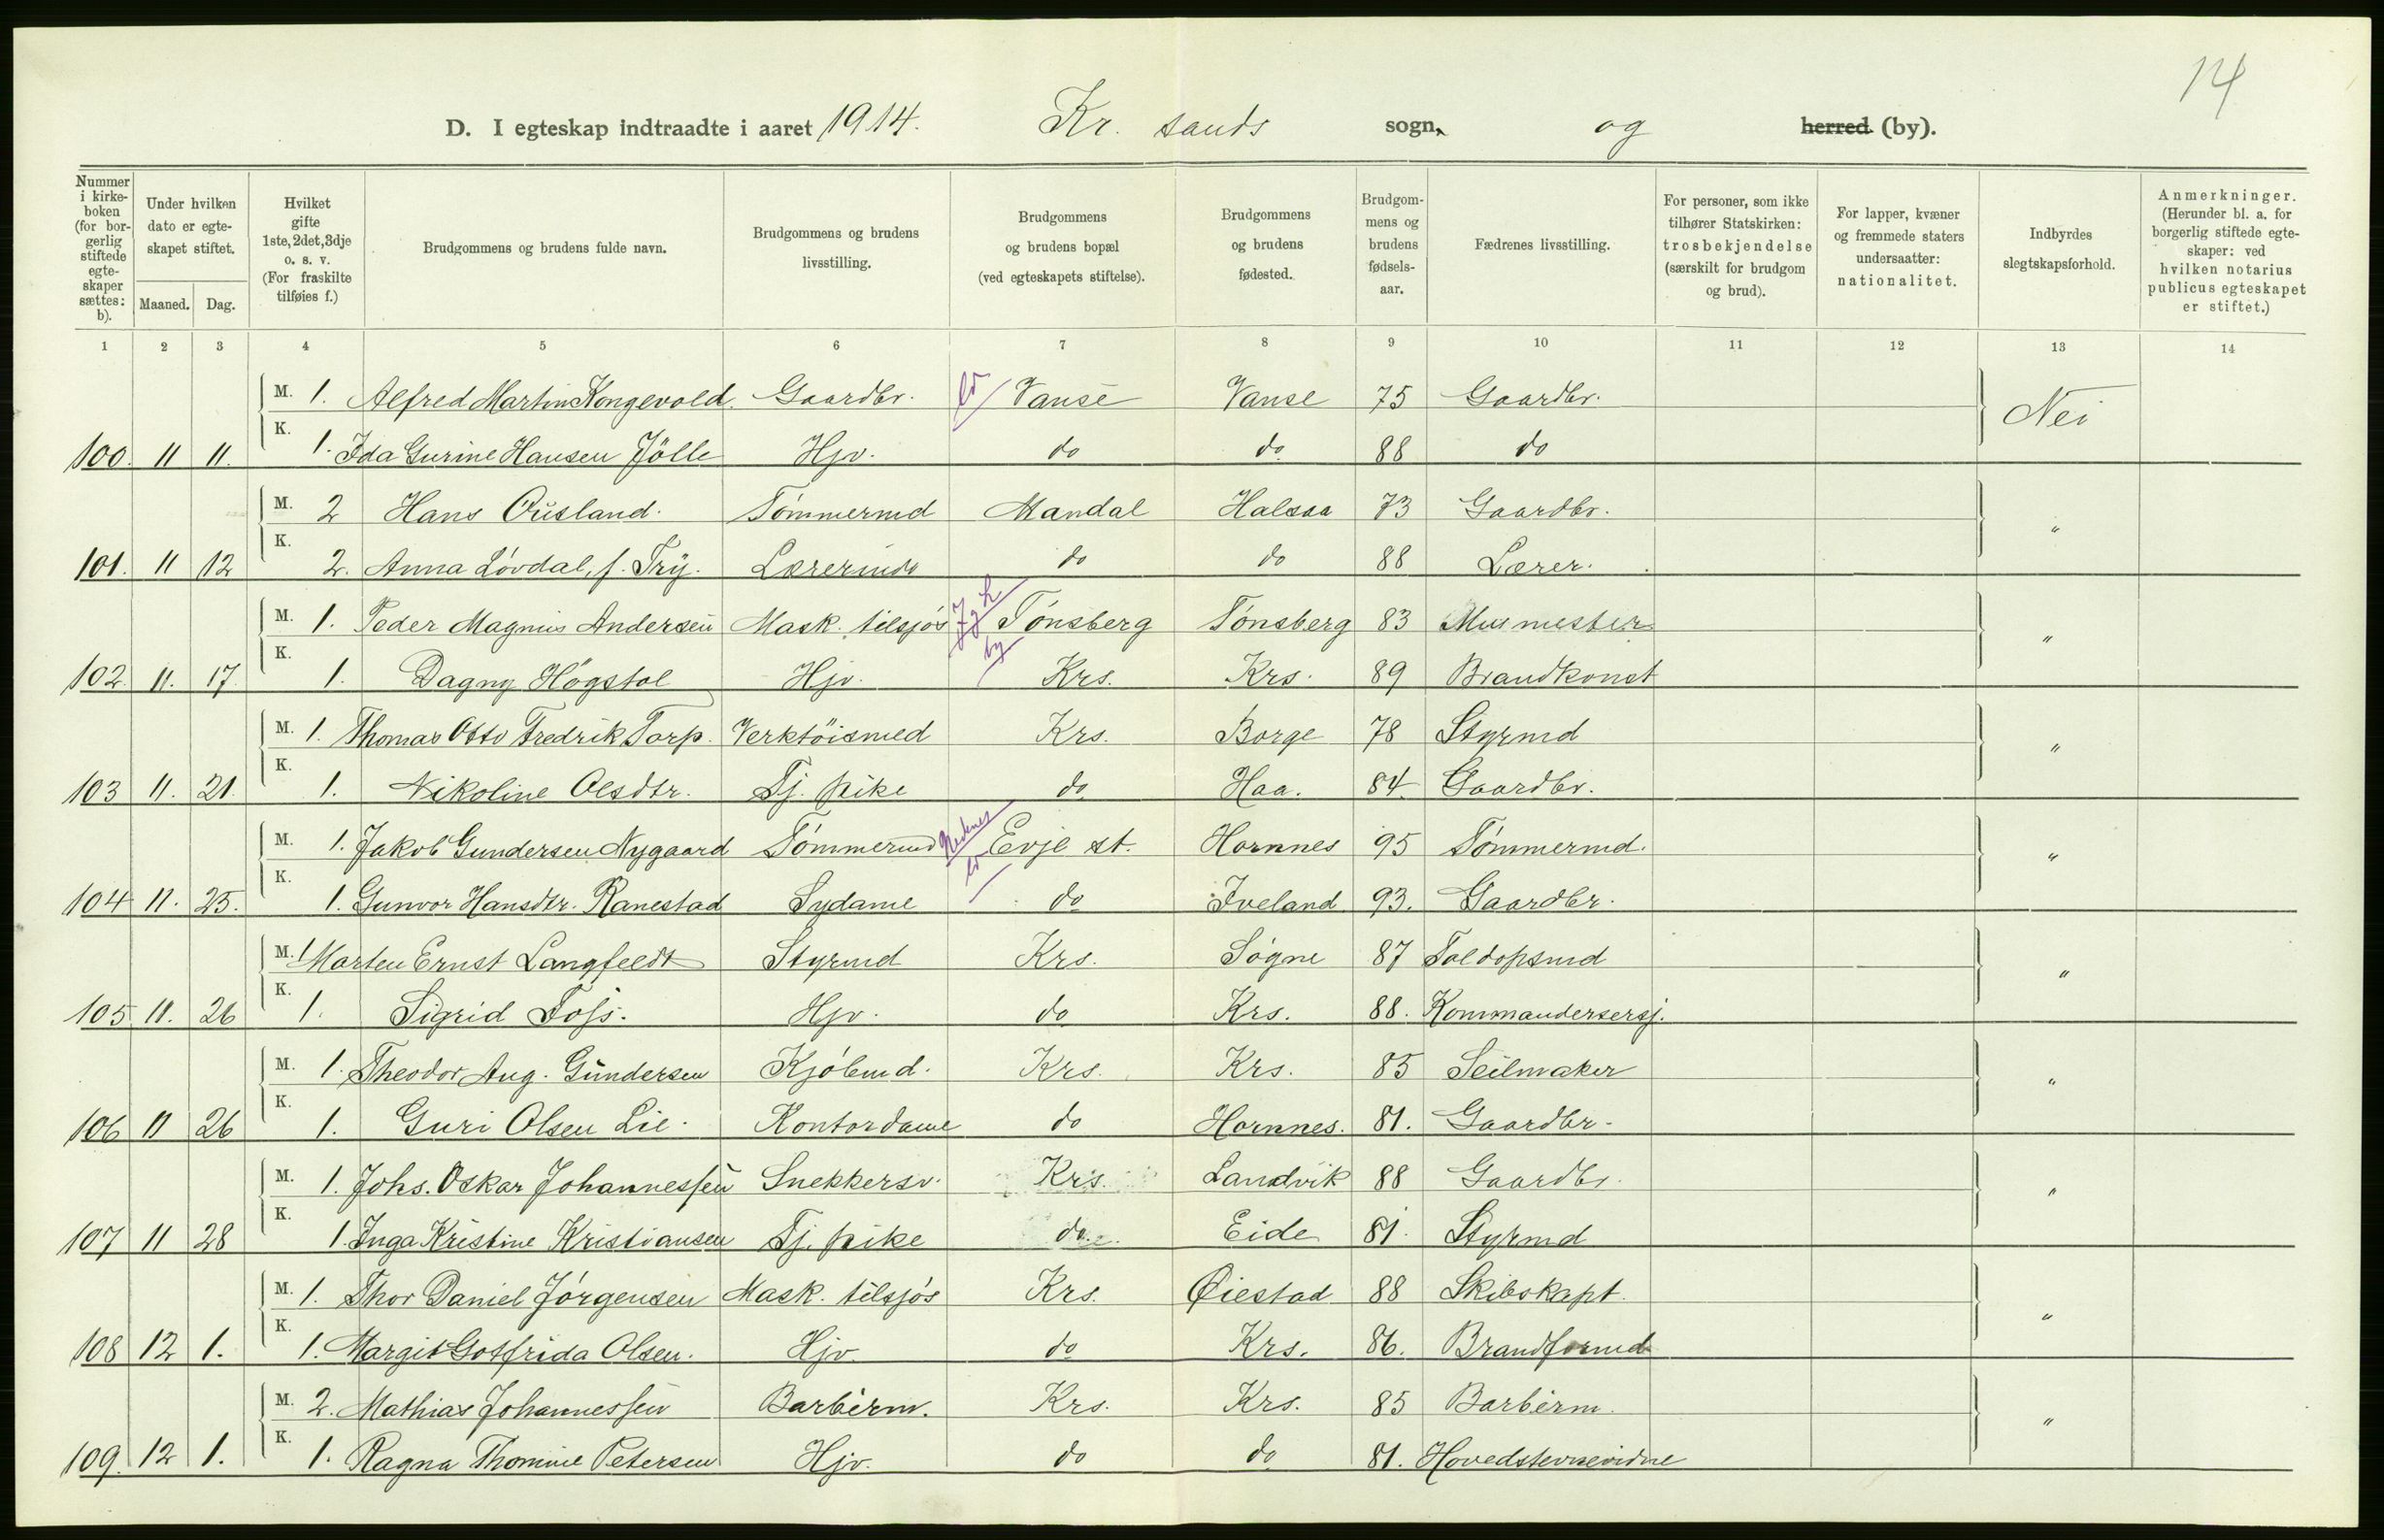 14
D. I egteskap indtraadte i aaret 1914. Kr. sands sogn, og herred (by).
Nummer i kirkeboken (for borgerlig stiftede egteskaper sættes: b).
Under hvilken dato er egteskapet stiftet.
Maaned. Dag.
Hvilket gifte 1ste, 2det, 3dje o. s. v. (For fraskilte tilføies f.)
Brudgommens og brudens fulde navn.
Brudgommens og brudens livsstilling.
Brudgommens og brudens bopæl (ved egteskapets stiftelse).
Brudgommens og brudens fødested.
Brudgommens og brudens fødselsaar.
Fædrenes livsstilling.
For personer, som ikke tilhører Statskirken: trosbekjendelse (særskilt for brudgom og brud).
For lapper, kvæner og fremmede staters undersaatter: nationalitet.
Indbyrdes slegtskapsforhold.
Anmerkninger. (Herunder bl. a. for borgerlig stiftede egteskaper: ved hvilken notarius publicus egteskapet er stiftet.)
1 2 3 4 5 6 7 8 9 10 11 12 13 14
M. 1. Alfred Martin Kongevold. Gaardbr. Vanse Vanse 75 Gaardbr. Nei
100. 11 11. K. 1. Ida Gurine Hansen Jölle Hjv. do do 88 do
M. 2 Hans Ousland. Tømmermd Mandal Halsaa 73 Gaardbr. "
101. 11 12 K. 2. Anna Løvdal, f. Try. Lærerinde do do 88 Lærer.
M. 1. Peder Magnus Andersen Mask. tilsjøs Tønsberg Tønsberg 83 Murmester "
102. 11. 17. K. 1. Dagny Høgstol Hjv. by Krs. Krs. 89 Brandkonst
M. 1. Thomas Otto Fredrik Torp. Verktöismed Krs. Borge 78 Styrmd "
103 11. 21. K. 1. Nikoline Olsdtr. Tj. pike do Haa. 84 Gaardbr.
M. 1. Jakob Gundersen Nygaard Tømmermd Nedenes Evje st. Hornnes 95 Tømmermd. "
104 11. 25. K. 1. Gunvor Hansdtr. Ranestad Sydame do Iveland 93. Gaardbr.
M. 1 Morten Ernst Langfeldt Styrmd Krs. Søgne 87 Toldopsmd "
105 11. 26 K. 1. Sigrid Foss. Hjv. do Krs. 88. Kommandersersj.
M. 1. Theodor Aug. Gundersen Kjøbmd. Krs. Krs. 85 Seilmaker "
106 11 26 K. 1. Guri Olsen Lie. Kontordame do Hornnes. 81. Gaardbr.
M. 1. Johs. Oskar Johannessen Snekkersv. Krs. Landvik 88 Gaardbr. "
107 11 28 K. 1. Inga Kristine Kristiansen Tj. pike do. Eide 81. Styrmd
M. 1. Thor Daniel Jörgensen Mask. tilsjøs Krs. Øiestad 88 Skibskapt. "
108 12 1. K. 1. Margit Gotfrida Olsen. Hjv. do Krs. 86. Brandformd
M. 2. Mathias Johannessen Barberm. Krs. Krs. 85 Barberm. "
109. 12 1. K. 1. Ragna Thomine Petersen Hjv. do do 81. Hovedstevnevidne